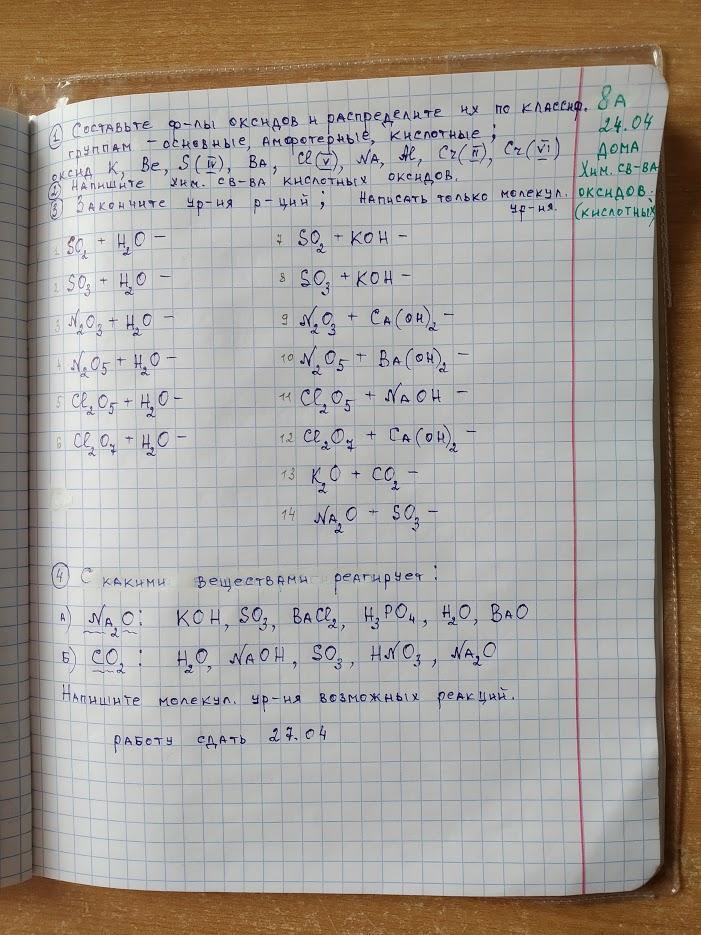 ① Составьте ф-лы оксидов и распределите их по классиф.
группам – основные, амфотерные, кислотные;
оксид K, Be, S(IV), Ba, Cl(V), Na, Al, Cr(II), Cr(VI)
② Напишите хим. св-ва кислотных оксидов.
③ Закончите ур-ния р-ций; Написать только молекул.
ур-ния.
8А
24.04
Дома
Хим. св-ва
оксидов.
(кислотных)
1 SO₂ + H₂O –
2 SO₃ + H₂O –
3 N₂O₃ + H₂O –
4 N₂O₅ + H₂O –
5 Cl₂O₅ + H₂O –
6 Cl₂O₇ + H₂O –
7 SO₂ + KOH –
8 SO₃ + KOH –
9 N₂O₃ + Ca(OH)₂ –
10 N₂O₅ + Ba(OH)₂ –
11 Cl₂O₅ + NaOH –
12 Cl₂O₇ + Ca(OH)₂ –
13 K₂O + CO₂ –
14 Na₂O + SO₃ –
④ С какими веществами реагирует:
А) Na₂O: KOH, SO₃, BaCl₂, H₃PO₄, H₂O, BaO
Б) CO₂: H₂O, NaOH, SO₃, HNO₃, Na₂O
Напишите молекул. ур-ния возможных реакций.
работу сдать 27.04